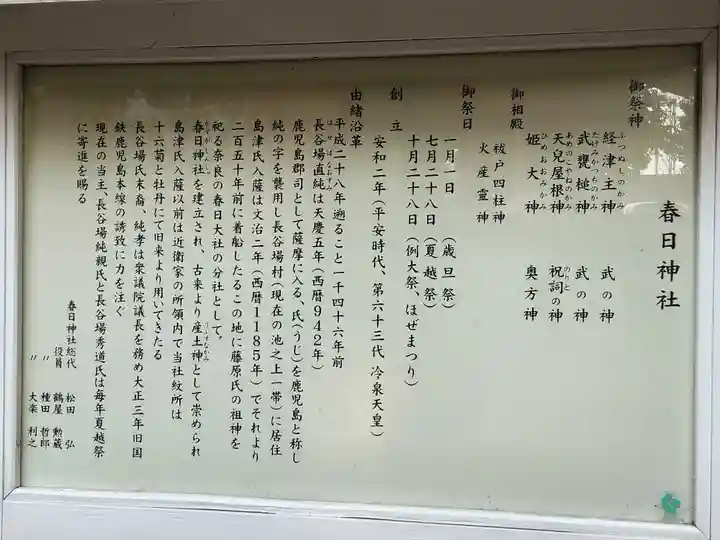 春日神社
御祭神
経津主神 武の神
ふつぬしのかみ
武甕槌神 武の神
たけみかづちのかみ
天兒屋根神 祝詞の神
あめのこやねのかみ のりと
姫大神 奥方神
ひめおおみかみ
御相殿
祓戸四柱神
火産霊神
御祭日
一月一日(歳旦祭)
七月二十八日(夏越祭)
十月二十八日(例大祭、ほぜまつり)
創立
安和二年(平安時代、第六十三代 冷泉天皇)
由緒沿革
平成二十八年遡ること一千四十六年前
長谷場直純は天慶五年(西暦942年)
はせばなおずみ
鹿児島郡司として薩摩に入る、氏(うじ)を鹿児島と称し
純の字を襲用し長谷場村(現在の池之上一帯)に居住
島津氏入薩は文治二年(西暦1185年)でそれより
二百五十年前に着船したるこの地に藤原氏の祖神を
祀る奈良の春日大社の分社として。
春日神社を建立され、古来より産土神として崇められ
うぶすなかみ
島津氏入薩以前は近衛家の所領内で当社紋所は
十六菊と牡丹にて旧来より用いてきたる
長谷場氏末裔、純孝は衆議院議長を務め大正三年旧国
鉄鹿児島本線の誘致に力を注ぐ
現在の当主、長谷場純親氏と長谷場秀道氏は毎年夏越祭
に寄進を賜る
春日神社総代 松田 弘
役員 鶴屋 勲蔵
〃 種田 哲郎
〃 大楽 利之